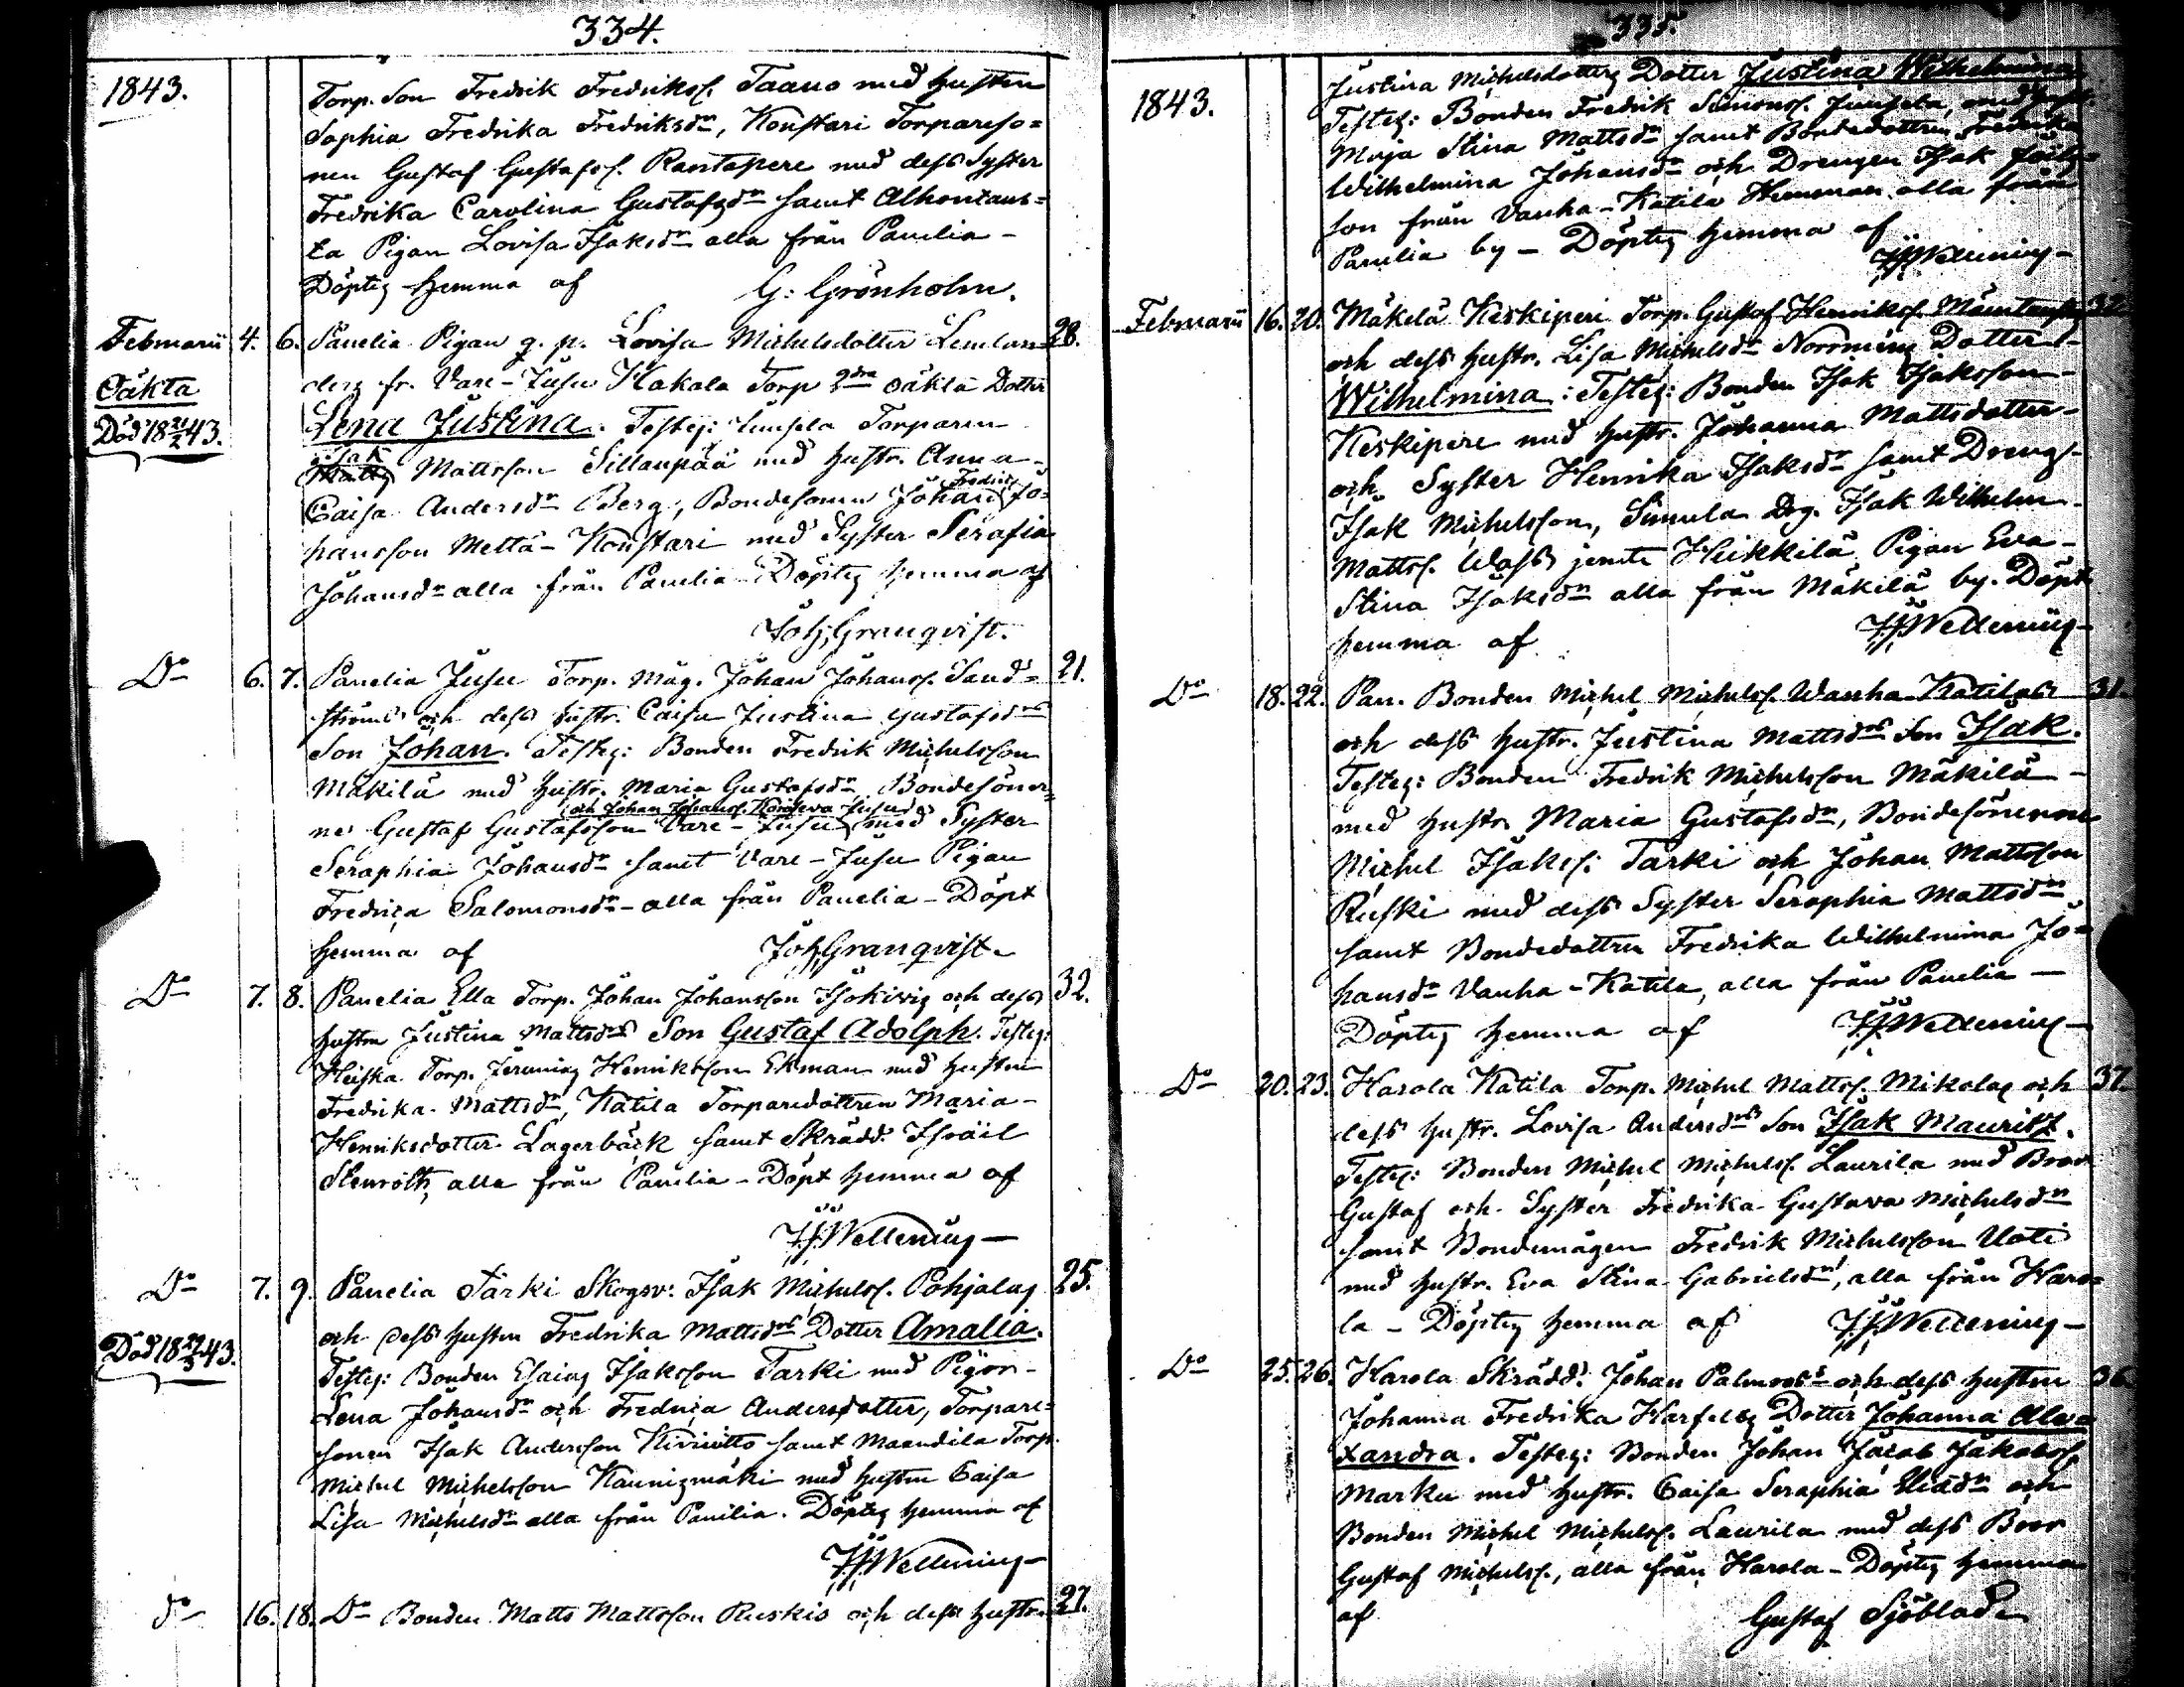 334.
1843.
Torp. Son Fredrik Fredrikss. Taano med Hustrun
Sophia Fredrika Fredriksdr, Konstari Torpareso=
nen Gustaf Gustafss. Rantapere med dess Syster
Fredrika Carolina Gustafsdr samt Alhontaus=
ta Pigan Lovisa Isaksdr alla från Panelia -
Döptes hemma af G: Grönholm.
Februarii 4. 6. Panelia Pigan g. p. Lovisa Michelsdotter Lemlun= 28.
ders fr. Vare-Jusu Kakala Torp 2dra oäkta Dotter
Oäkta
Lena Justina. Testes: Torparen
Död 18 21/2 43.
Isak
Matts Mattsson Sillanpää med hustr. Anna
Fredrik
Caisa Andersdr Berg, Bondesonen Johan Jo=
hansson Mettä-Konstari med Syster Serafia
Johansdr alla från Panelia - Döptes hemma af
Joh: Granqvist.
Do 6. 7. Panelia Jusu Torp. Måg. Johan Johanss. Sand= 21.
ströms och dess hustr. Caisa Justina Gustafsdrs
Son Johan. Testes: Bonden Fredrik Michelsson
Mäkilä med Hustr. Maria Gustafsdr, Bondesöner=
och Johan Johanss. Jusu
ne Gustaf Gustafsson Vare-Jusu med Syster
Seraphia Johansdr samt Vare-Jusu Pigan
Fredrica Salomonsdr - alla från Panelia - Döpt
hemma af Joh: Granqvist
Do 7. 8. Panelia Ella Torp. Johan Johansson Isokivis och dess 32.
hustru Justina Mattsdrs Son Gustaf Adolph. Testes:
Heiska Torp. Jeremias Henriksson Ekman med Hustrun
Fredrika Mattsdr, Katila Torparedottren Maria
Henriksdotter Lagerbäck samt Skrädd: Israël
Stenroth, alla från Panelia - Döpt hemma af
J:J:Wellenius
Do 7. 9. Panelia Tärki Skogsv: Isak Michelss. Pohjalas 25.
och dess hustru Fredrika Mattsdrs Dotter Amalia.
Död 18 43.
Testes: Bonden Esaias Isaksson Tarki med Pigan
Lena Johansdr och Fredrica Andersdotter, Torpare=
sonen Isak Andersson Kiviniitto samt Maandila Torp.
Michel Michelsson Kaunismäki med hustrun Caisa
Lisa Michelsdr alla från Panilia. Döptes hemma af
J:J:Wellenius
do 16. 18. Do Bonden Matts Mattsson Ruskis och dess hustr. 27.
335.
1843.
Justina Michelsdotters Dotter Justina Wilhelmina
Testes: Bonden Fredrik Simonss. med
Maja Stina Mattsdr samt Bondedottren Fredrika
Wilhelmina Johansdr och Drengen Isak
son från Vanha-Katila Hemman alla från
Panelia by - Döptes hemma af
J:J:Wellenius
Februarii 16. 20. Mäkelä Keskiperi Torp. Gustaf Henrikss.
och dess hustr. Lisa Michelsdr Norrmins Dotter
Wilhelmina: Testes: Bonden Isak Isaksson
Keskipere med hustr. Johanna Mattsdotter
och Syster Henrika Isaksdr samt Dreng.
Isak Michelsson, Simula Drg. Isak Wilhelm
Mattss. Wass jemte Heikkilä Pigan Eva
Stina Isaksdr alla från Mäkilä by. Döpt
hemma af J:J:Wellenius
Do 18. 22. Pan. Bonden Michel Michelss. Wanha-Katilas 31
och dess hustr. Justina Mattsdrs Son Isak.
Testes: Bonden Fredrik Michelsson Mäkilä
med hustr. Maria Gustafsdr, Bondesönerne
Michel Isakss: Tarki och Johan Mattsson
Ruski med dess Syster Seraphia Mattsdr
samt Bondedottren Fredrika Wilhelmina Jo=
hansdr Vanha-Katila, alla från Panelia
Döptes hemma af J:J:Wellenius
Do 20. 23. Harola Katila Torp. Michel Mattss. Mikolas och 37.
dess hustr. Lovisa Andersdrs Son Isak Mauritz.
Testes: Bonden Michel Michelss. Laurila med Bror
Gustaf och Syster Fredrika Gustava Michelsdr
samt Bondemågen Fredrik Michelsson Uoti
med hustr. Eva Stina Gabrielsdr, alla från Haro=
la - Döptes hemma af J:J:Wellenius
Do 25. 26. Harola Skrädd. Johan Palmroos och dess hustru 36
Johanna Fredrika Dotter Johanna Alex=
xandra. Testes: Bonden Johan Jacob Jakobss.
Marku med hustr. Caisa Seraphia Eliædr och
Bonden Michel Michelss. Laurila med dess Bror
Gustaf Michelss., alla från Harola - Döptes hemma
af Gustaf Sjöblad